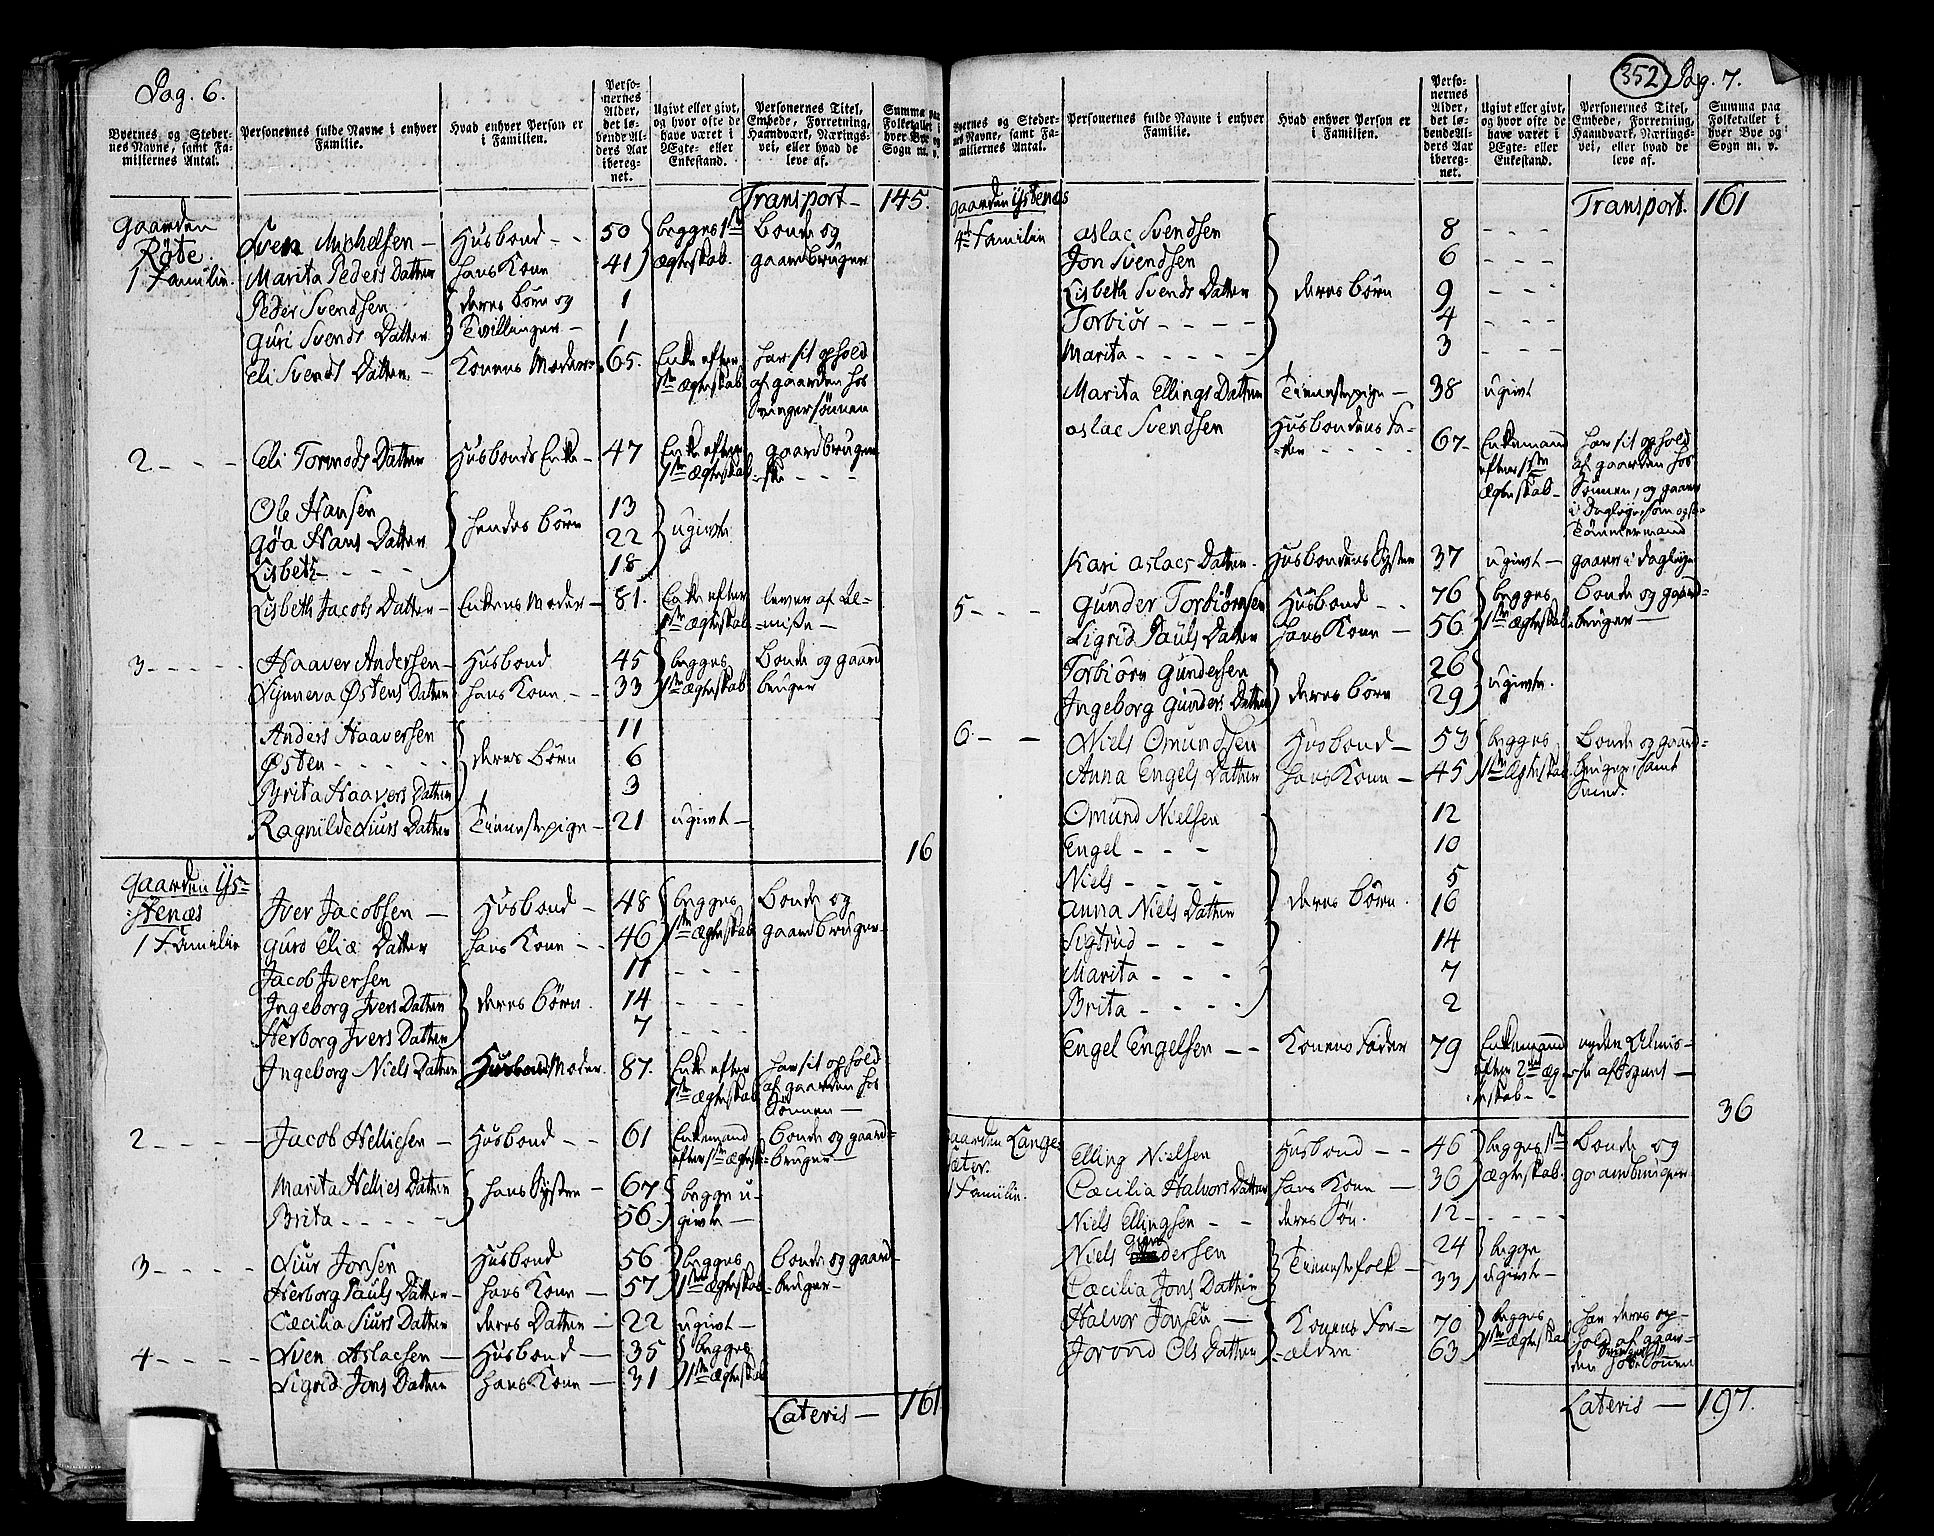 Pag. 6.
Byernes, og Steder-nes Navne, samt Fa-miliernes Antal. Personernes fulde Navne i enhver Familie. Hvad enhver Person er i Familien. Perso-nernes Alder, det lø-bende Al-ders Aar ibereg-net. Ugivt eller givt, og hvor ofte de have været i Ægte- eller Enkestand. Personernes Titel, Embede, Forretning, Haandværk, Nærings-vei, eller hvad de leve af. Summa paa Folketallet i hver Bye og Sogn m. v.
Transport — 145.
Gaarden
Röte. Sven Michelsen — Husbond - - 50 begges 1ste Bonde og
1 Familie. Marita Peders Datter hans Kone 41 Ægteskab. gaardbruger
Peder Svendsen deres børn og 1
Guri Svends Datter Tvillinger — 1
Eli Svends Datter — Konens Moder 65. Enke efter har sit ophold
1ste Ægteskab af gaarden hos
Svingersønnen
2 - - - Eli Tormods Datter Husbonds Enke — 47 Enke efter gaardbruger-
1ste Ægteskab ske - - -
Ole Hansen 13
Gøa Hans Datter hendes børn 22 ugivte
Lisbeth - - - - 18
Lisbeth Jacobs Datter — Enkens Moder — 81. Enke efter lever af Al-
1ste Ægteskab -misse —
3 - - - - Haaver Andersen — Husbond 45 begges Bonde og gaard
Synneva Østens Datter hans Kone - - 33 1ste Ægteskab bruger
Anders Haaversen 11
Østen - - - - - deres børn 6
Brita Haavers Datter 3
Ragnilde Siurs Datter Tienestepige — 21 ugivt —
16
Gaarden Ys-
stenæs Iver Jacobsen — Husbond — 48 begges Bonde og
1 Familie Guro Eliæ Datter hans Kone - - 46 1ste Ægteskab gaardbruger
Jacob Iversen 11 - - -
Ingeborg Ivers Datter deres børn. 14 - - -
Herborg Ivers Datter 7 - - -
Ingeborg Niels Datter Husbonds Moder. 87. Enke efter har sit ophold
1ste Ægteskab af gaarden hos
Sønnen —
2 - - - - Jacob Helliesen — Husbond - - 61 Enkemand bonde og gaard-
efter 1ste Ægtesk. bruger —
Marita Hellies Datter hans Syster — 67 begge u-
Brita - - - - - 56. givte —
3 - - - - Siur Jonsen Husbond 56 begges bonde og gaard-
Herborg Pauls Datter — hans Kone — 57 1ste Ægteskab bruger —
Cæcilia Siurs Datter deres Datter — 22 ugivt —
4 - - - - Sven Aslacsen — Husbond — 35 begges
Sigrid Jons Datter hans Kone — 31 1ste Ægteskab
Lateris — 161
352 Pag. 7.
Byernes og Steder-nes Navne, samt Fa-miliernes Antal. Personernes fulde Navne i enhver Familie. Hvad enhver Person er i Familien. Perso-nernes Alder, det lø-bende Al-ders Aar ibereg-net. Ugivt eller givt, og hvor ofte de have været i Ægte- eller Enkestand. Personernes Titel, Embede, Forretning, Haandværk, Nærings-vei, eller hvad de leve af. Summa paa Folketallet i hver Bye og Sogn m. v.
Gaarden Ystenæs Transport. 161
4de Familie Aslac Svendsen 8 - - -
Jon Svendsen 6 - - -
Lisbeth Svends Datter deres børn 9 - - -
Torbiør - - - - 4 - - -
Marita - - - - - 3 - - -
Marita Ellings Datter Tienestepige — 38 ugivt
Aslac Svendsen Husbondens Fa-
-der - - - - - 67 - Enkemand har sit ophold
efter 1ste af gaarden hos
Ægteskab - Sønnen, og gaaer
i Dagleye, som og saa
Tømmermand
Kari Aslacs Datter. Husbondens Syster 37 ugivt — gaaer i dagleye
5 - - - Gunder Torbiørnsen Husbond - - 76 begges bonde og gaard-
Sigrid Pauls Datter hans Kone — 56 1ste Ægteskab bruger —
Torbiørn Gundersen 26
Ingeborg Gunders Datter deres børn 29 ugivte.
6. - - Niels Omundsen Husbond — 53 begges Bonde og gaard-
Anna Engels Datter hans Kone — 45 1ste Ægteskab bruger, samt
Smed.
Omund Nielsen 12
Engel - - - 10
Niels - - - - 5
Anna Niels Datter deres børn. 16
Sigtrud - - - 14
Marita - - - 7
Brita - - - - 2
Engel Engelsen - - Konens Fader 79 Enkemand nyder Almis-
efter 2det Æg- -se af Sognet —
teskab - -
36
Gaarden Lange
sæter. Elling Nielsen Husbond - - 46 begges 1ste Bonde og
1 Familie. Cæcilia Halvors Datter hans Kone — 36 Ægteskab. gaardbruger
Niels Ellingsen - - deres Søn. 12 - - - - -
Niels Gundersen 24 begge
Cæcilia Jons Datter Tienestefolk — 33 ugivte —
Halvor Jonsen — Konens For- 70 begges har deres op-
Jorond Ols Datter -ældre. 63 1ste Ægteskab hold af gaar-
den hos Svingersønnen
Lateris — 197.